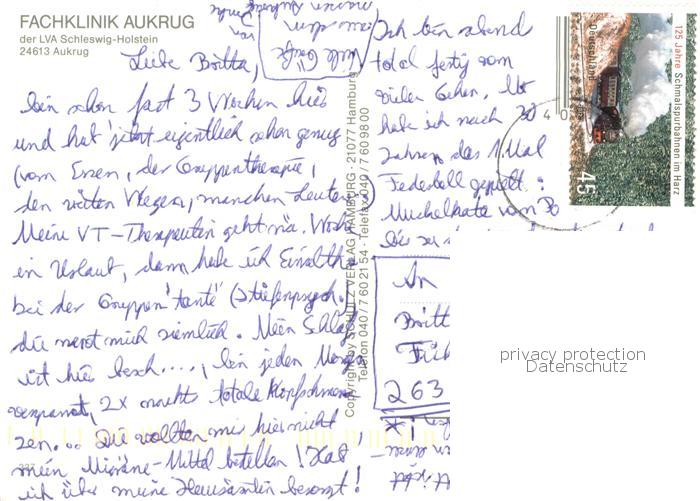 FACHKLINIK AUKRUG
der LVA Schleswig-Holstein
24613 Aukrug
Liebe Britta,
bin schon fast 3 Wochen hier
und hab' jetzt eigentlich schon genug
(vom Essen, der Gruppentherapie,
den weiten Wegen, manchen Leuten)
Meine VT-Therapeutin geht nä. Woche
in Urlaub, dann habe ich Einzelth.
bei der Gruppen"tante" (Tiefenpsych.)
die nervt mich ziemlich. Mein Schlaf
ist hier besch...., bin jeden Morgen
verspannt, 2x nachts totale Kopfschmer-
zen... Die wollten mir hier nicht
mein Migräne-Mittel bestellen! Hab
ich über meine Hausärztin besorgt!
Viele Grüße
Ich bin abend
total fertig vom
vielen Gehen. Mo
habe ich nach 30
Jahren das 1. Mal
Federball gespielt:
Muskelkater vom Po
bis zu
An
Britt
263
Copyright by SCHÜTZ VERLAG HAMBURG · 21077 Hamburg
Telefon 040 / 7 60 21 54 · Telefax 040 / 7 60 98 00
Deutschland
45
125 Jahre Schmalspurbahnen im Harz
privacy protection
Datenschutz